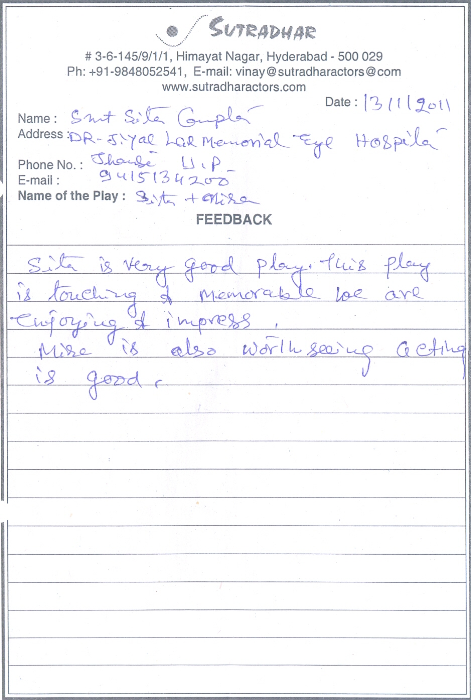 SUTRADHAR
# 3-6-145/9/1/1, Himayat Nagar, Hyderabad - 500 029
Ph: +91-9848052541, E-mail: vinay@sutradharactors@com
www.sutradharactors.com
Date : 13/1/2011
Name : Smt Sita Gupta
Address : DR-Jiyal Lal Memorial Eye Hospital
Phone No. : Jhansi U.P.
E-mail : 9415134200
Name of the Play : Sita + Mira
FEEDBACK
Sita is very good play. This play
is touching & Memorable we are
enjoying & impress.
Mira is also worth seeing acting
is good.